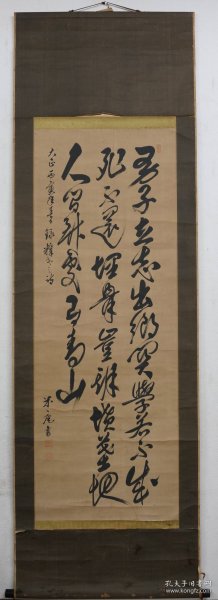 男子立志出鄉関學若不成
死不還埋骨豈惟墳墓地
人間到處有青山
大正丙寅
書
孔夫子旧书网
www.kongfz.com